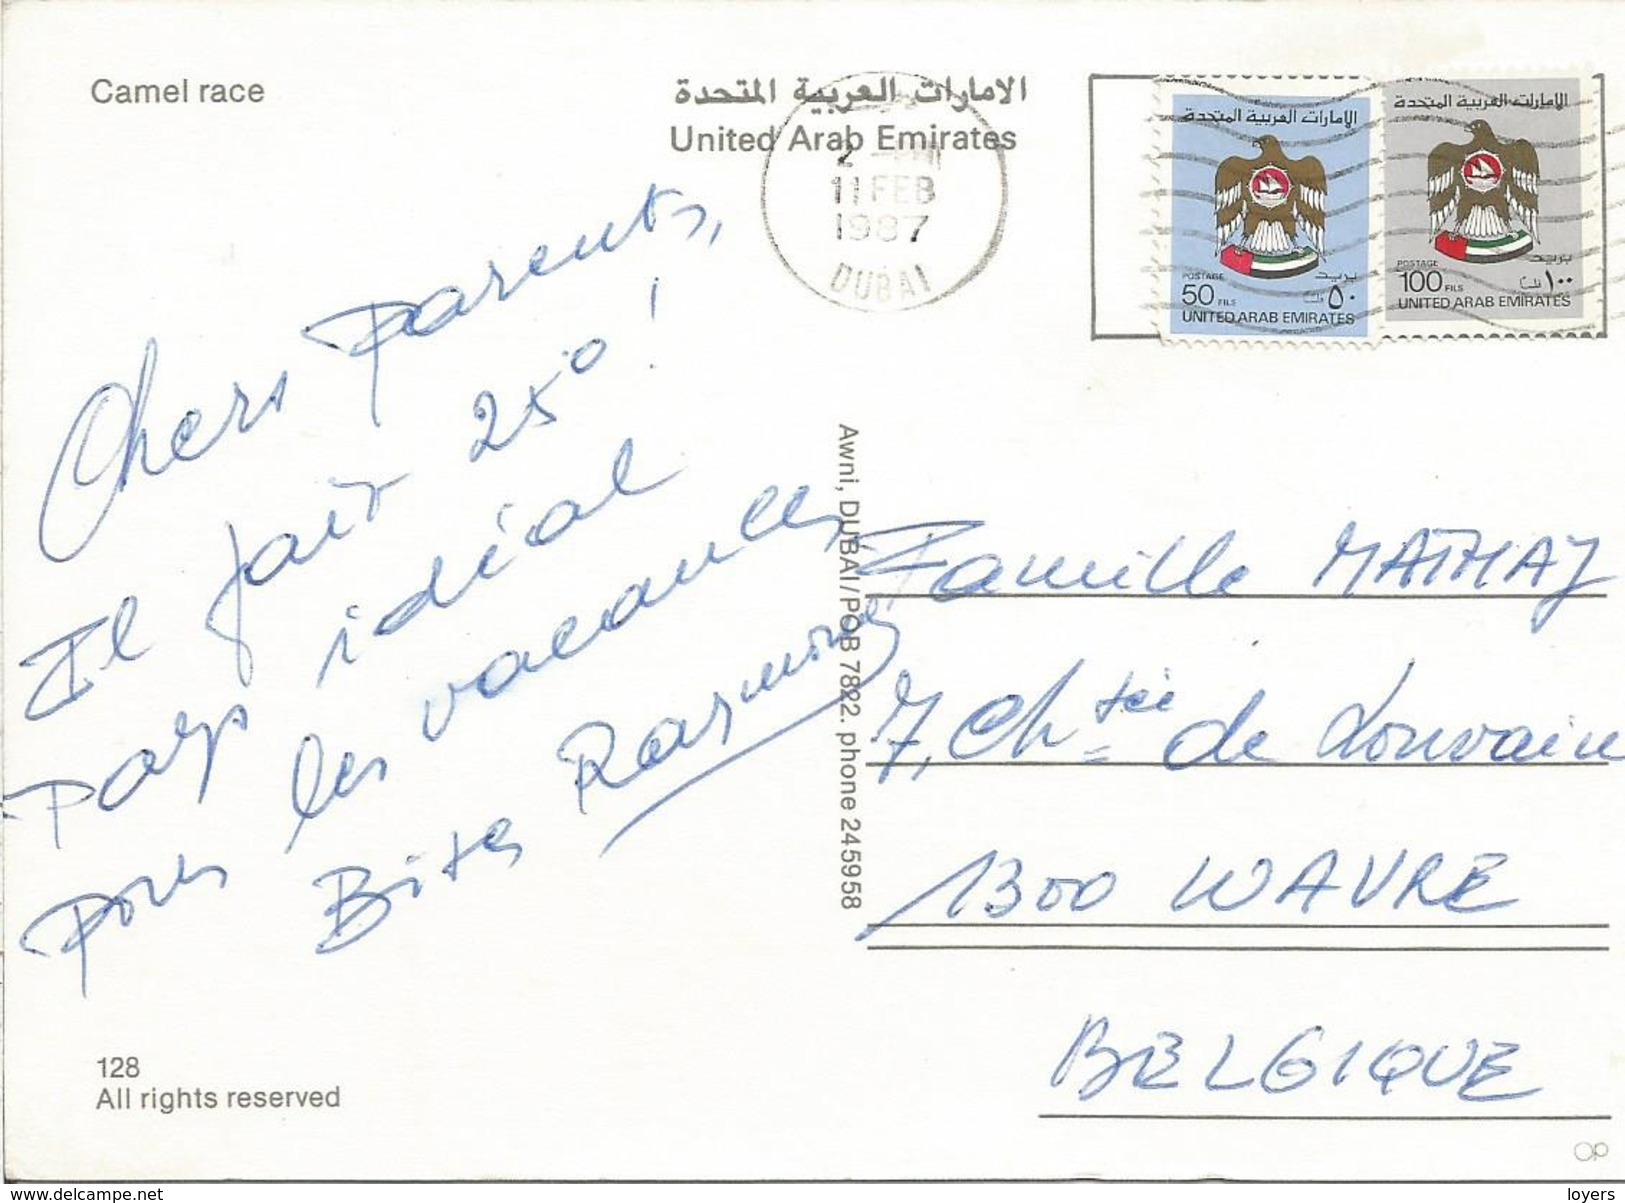 Camel race
الامارات العربية المتحدة
United Arab Emirates
11 FEB
1987
DUBAI
الامارات العربية المتحدة
POSTAGE بريد
50 FILS ٥٠ فلساً
UNITED ARAB EMIRATES
الامارات العربية المتحدة
POSTAGE بريد
100 FILS ١٠٠ فلس
UNITED ARAB EMIRATES
Chers Parents,
Il fait 25° !
Pays idéal
pour les vacances
Bises
Awni, DUBAI/POB 7822. phone 245958
Famille MATHAY
7, Ch tée de Louvain
1300 WAVRE
BELGIQUE
128
All rights reserved
www.delcampe.net
loyers